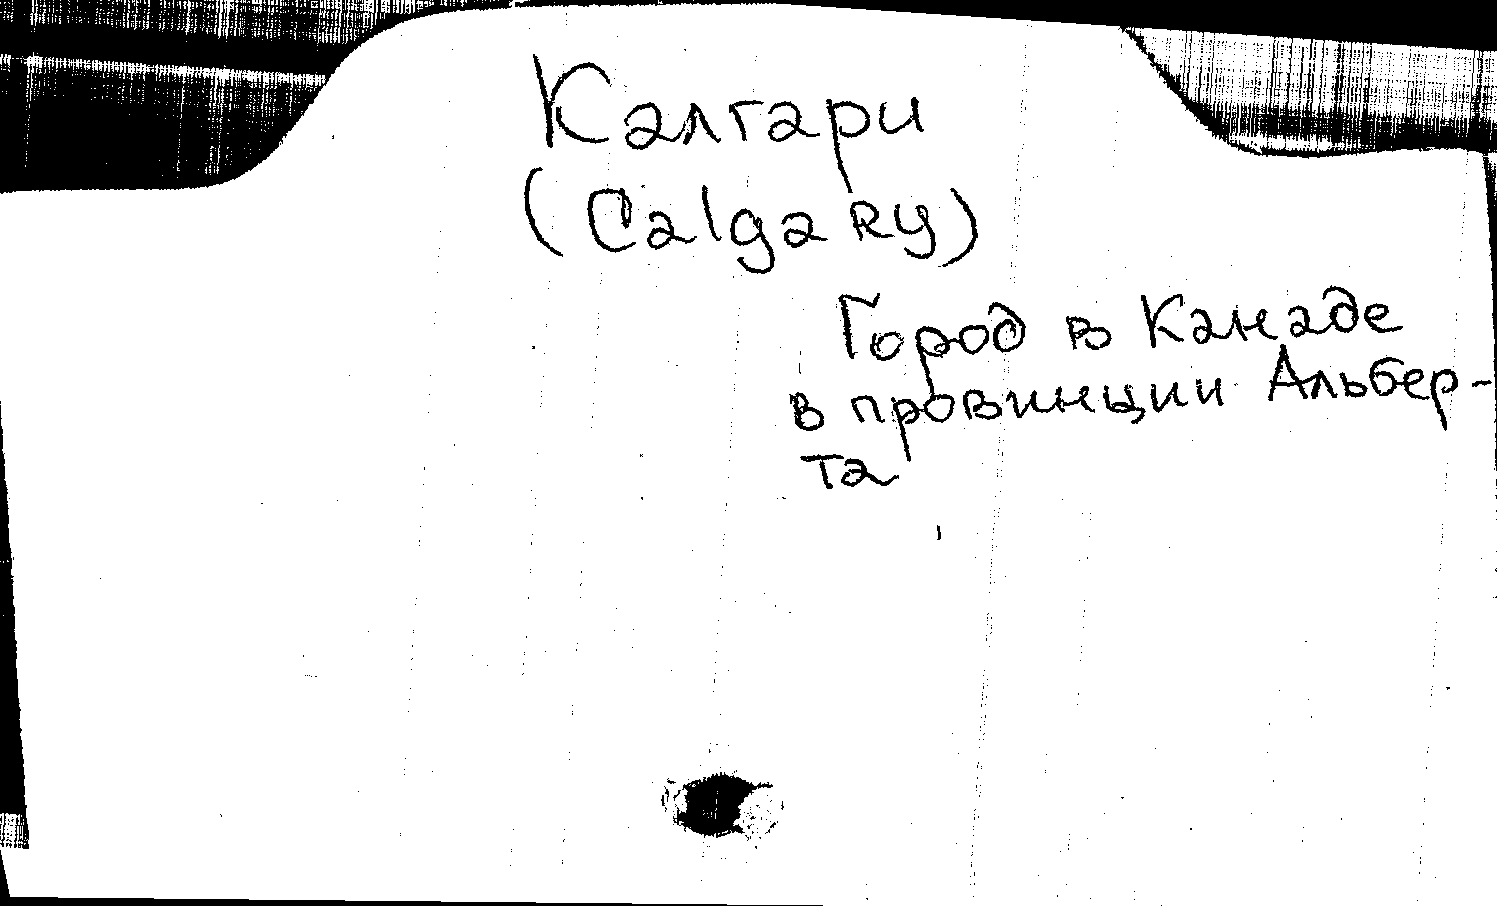 Калгари
(Calgary)
Город в Канаде
в провинции Альбер-
та